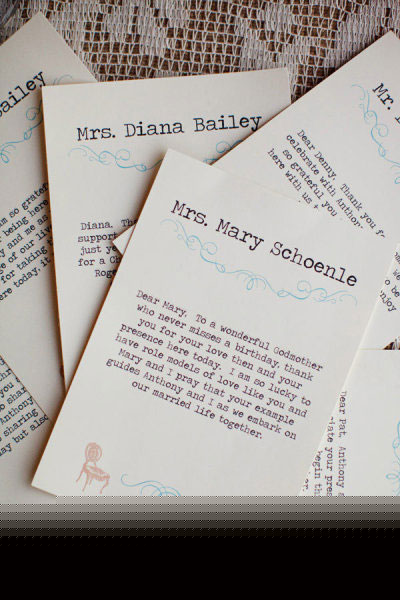 Mrs. Mary Schoenle
Dear Mary. To a wonderful Godmother
who never misses a birthday, thank
you for your love then and your
presence here today. I am so lucky to
have role models of love like you and
Mary and I pray that your example
guides Anthony and I as we embark on
our married life together.
Mrs. Diana Bailey
Diana. The
support
just y
for a C
Roge
Bailey
so grate
being here
and me as
of our live
for taking t
here today.
Mr.
Dear Denny. Thank you f
celebrate with Anthony
so grateful you
here with us
njoy
ear Pat. Anthony
iate your pres
begin th
shar
Anthony
s sharing
ay but als